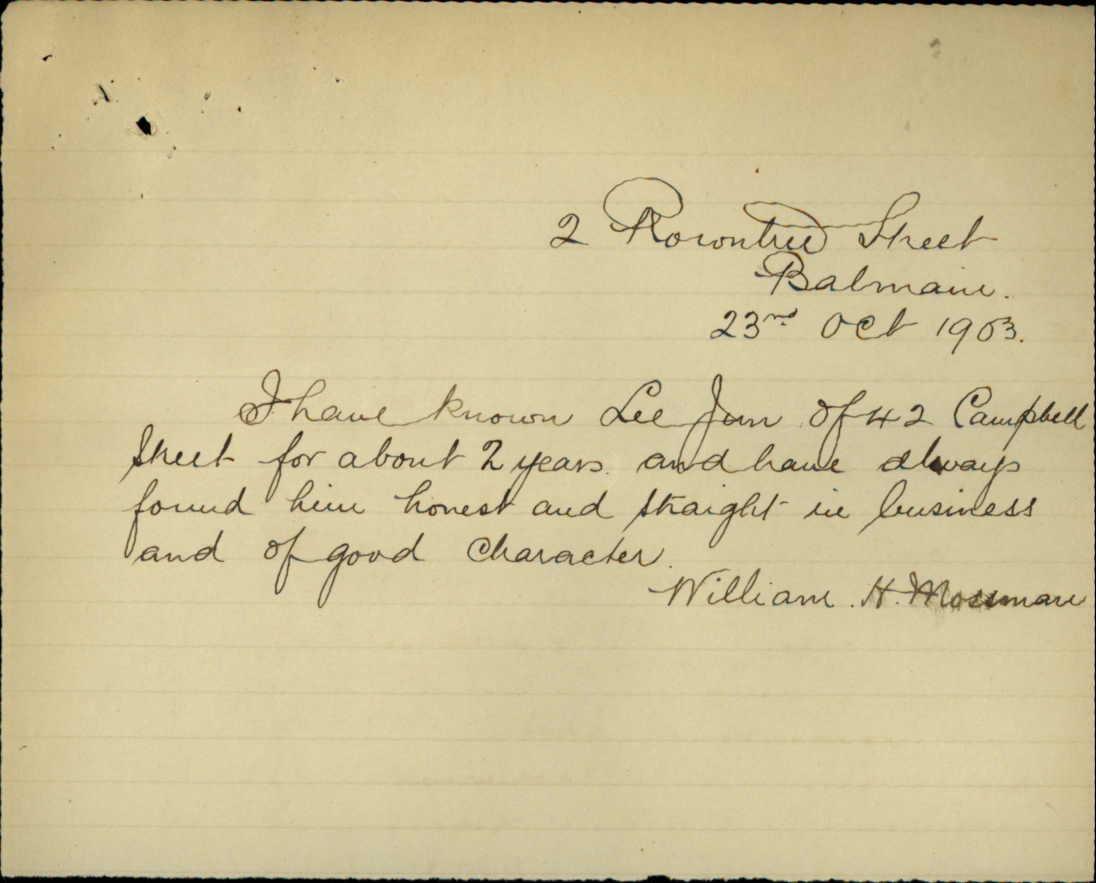 2 Rowntree Street
Balmain.
23rd Oct 1903.
I have known Lee Jun of 42 Campbell
Street for about 2 years and have always
found him honest and straight in business
and of good character.
William H.